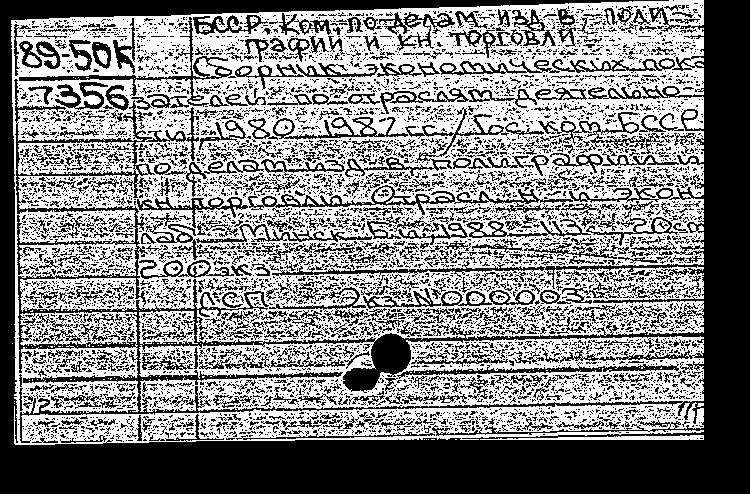 БССР. Ком. по делам изд-в, поли-
графии и кн. торговли
89-50к
Сборник экономических пока-
7356
зателей по отраслям деятельно-
сти, 1980-1987 гг. / Гос. ком. БССР
по делам изд-в, полиграфии и
кн. торговли. Отрасл. н.-и. экон.
лаб. - Минск: Б.и., 1988. - 113с.; 20см
200 экз.
ДСП Экз. №000003
12